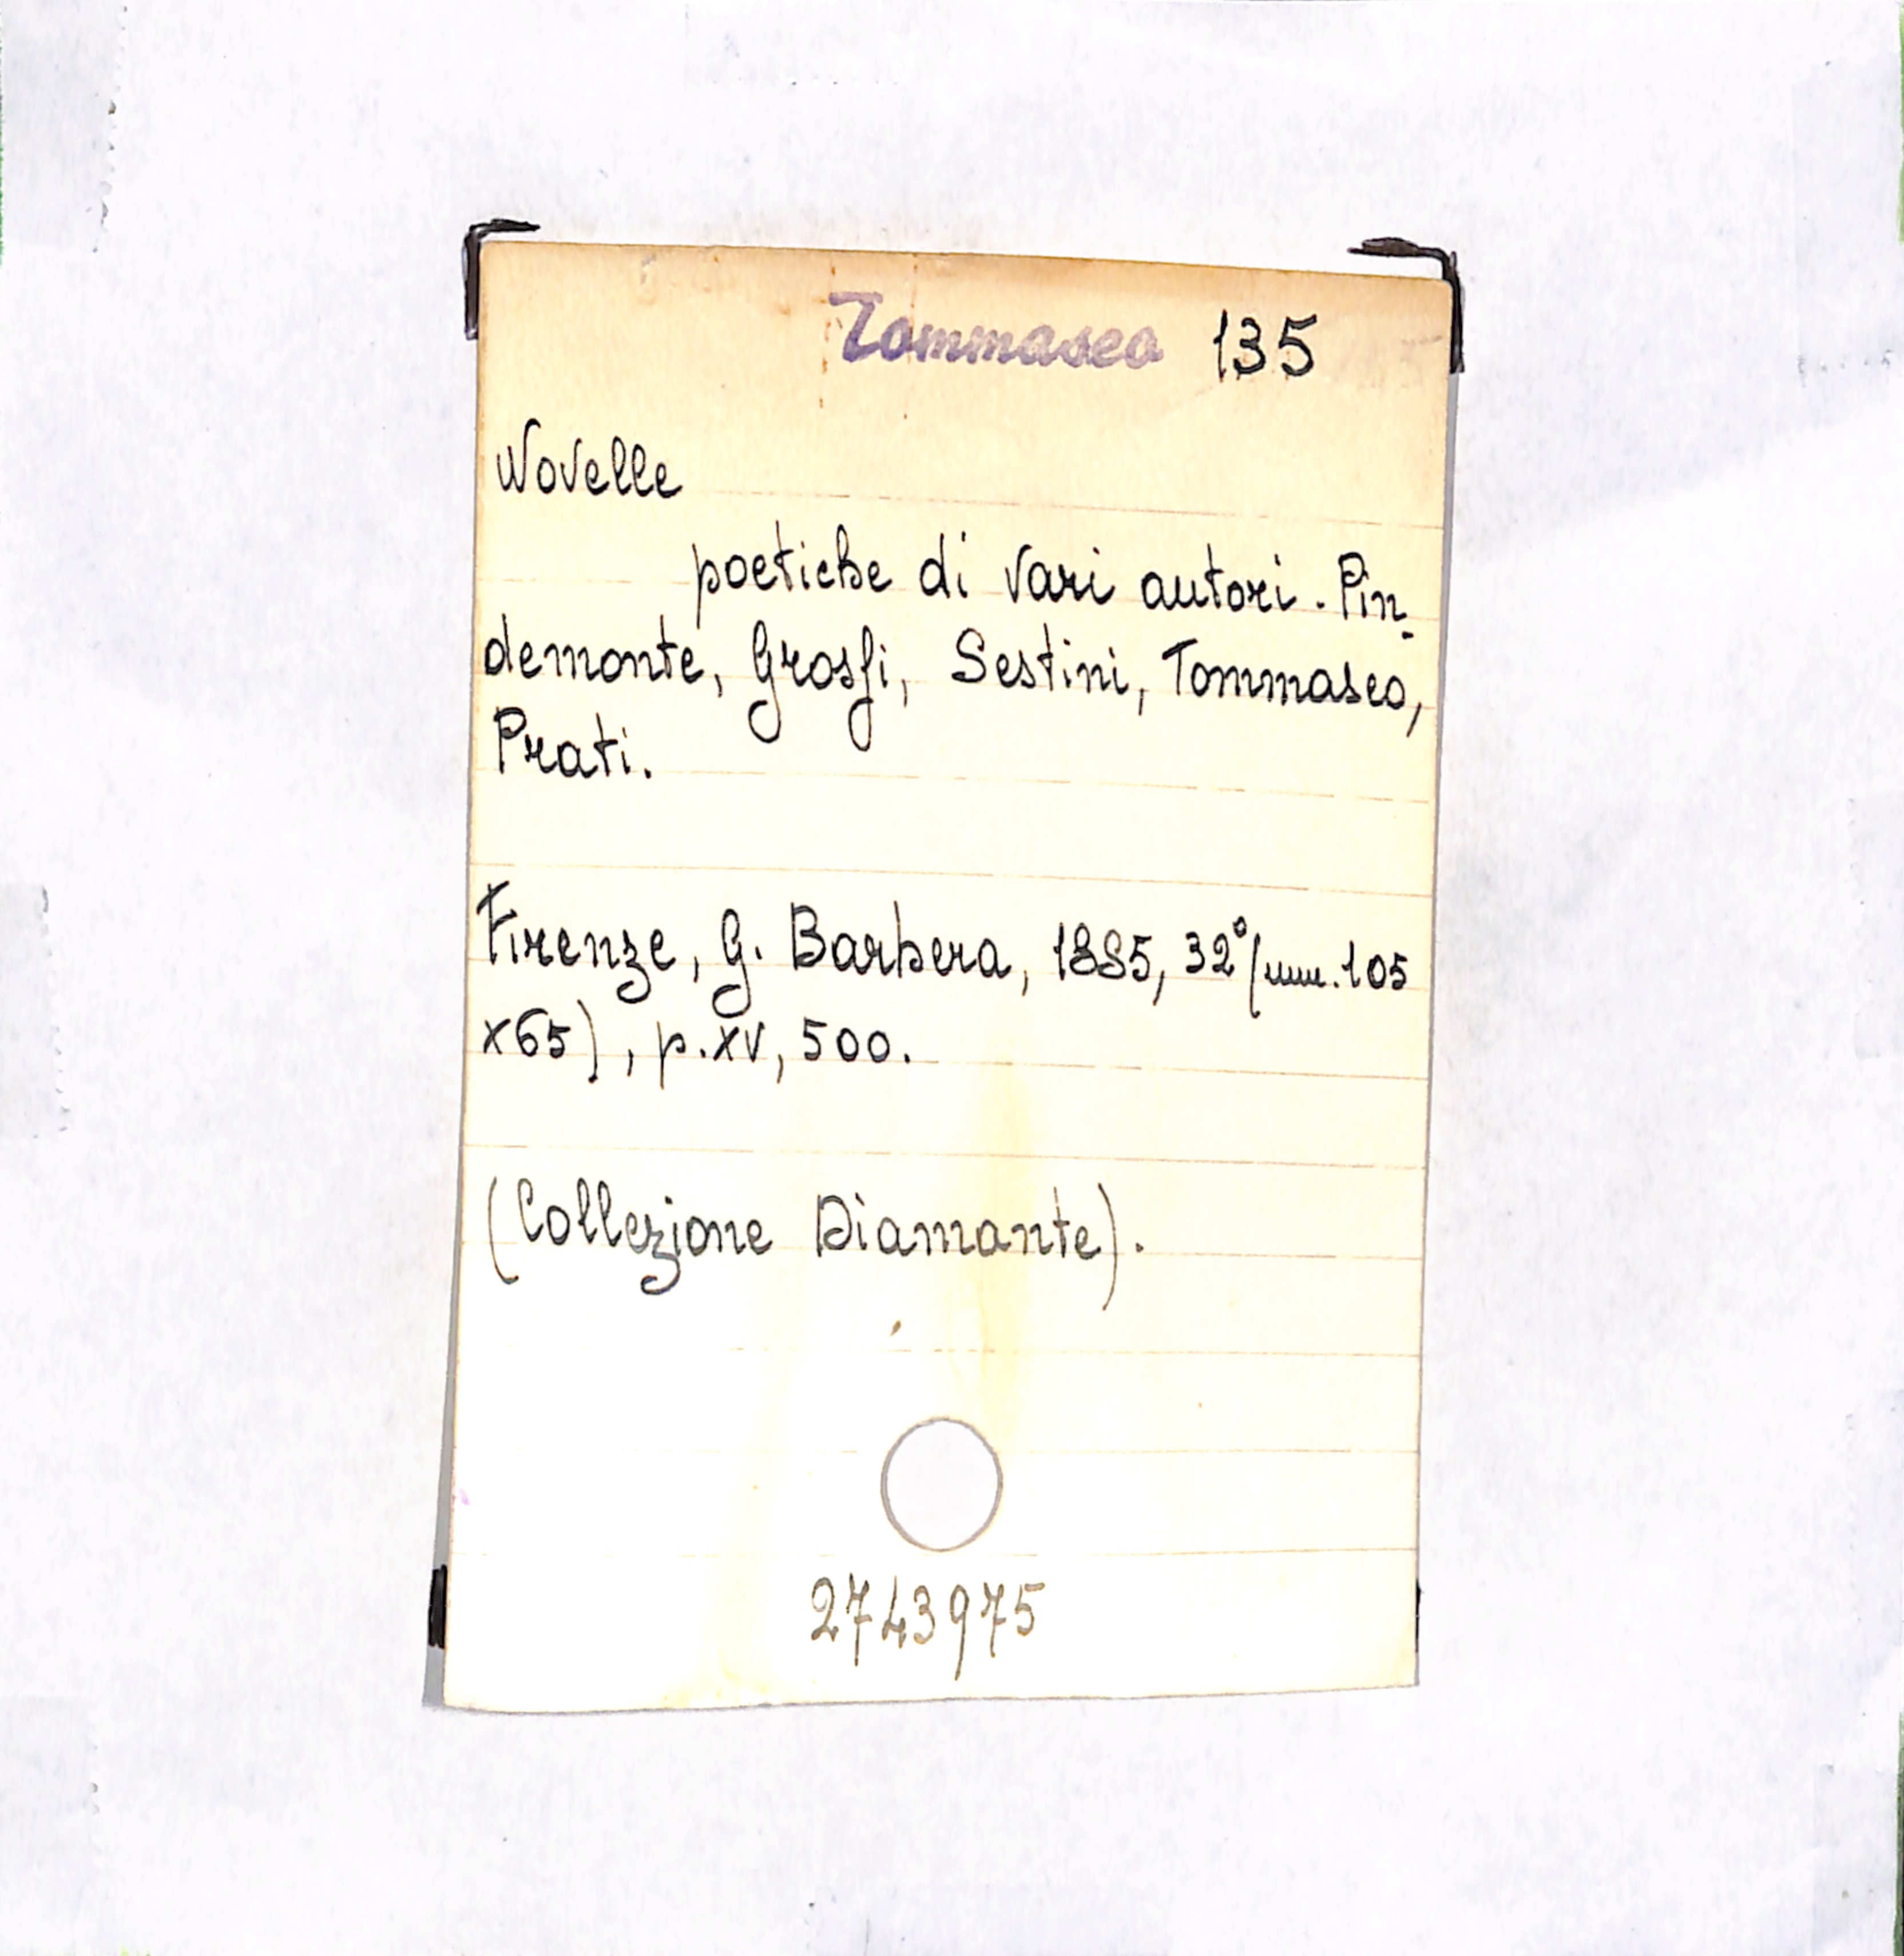 Tommaseo 135
Novelle
poetiche di vari autori. Pin-
demonte, Grossi, Sestini, Tommaseo,
Prati.
Firenze, G. Barbera, 1885, 32° (mm. 105
x65), p. XV, 500.
(Collezione Diamante).
2743975